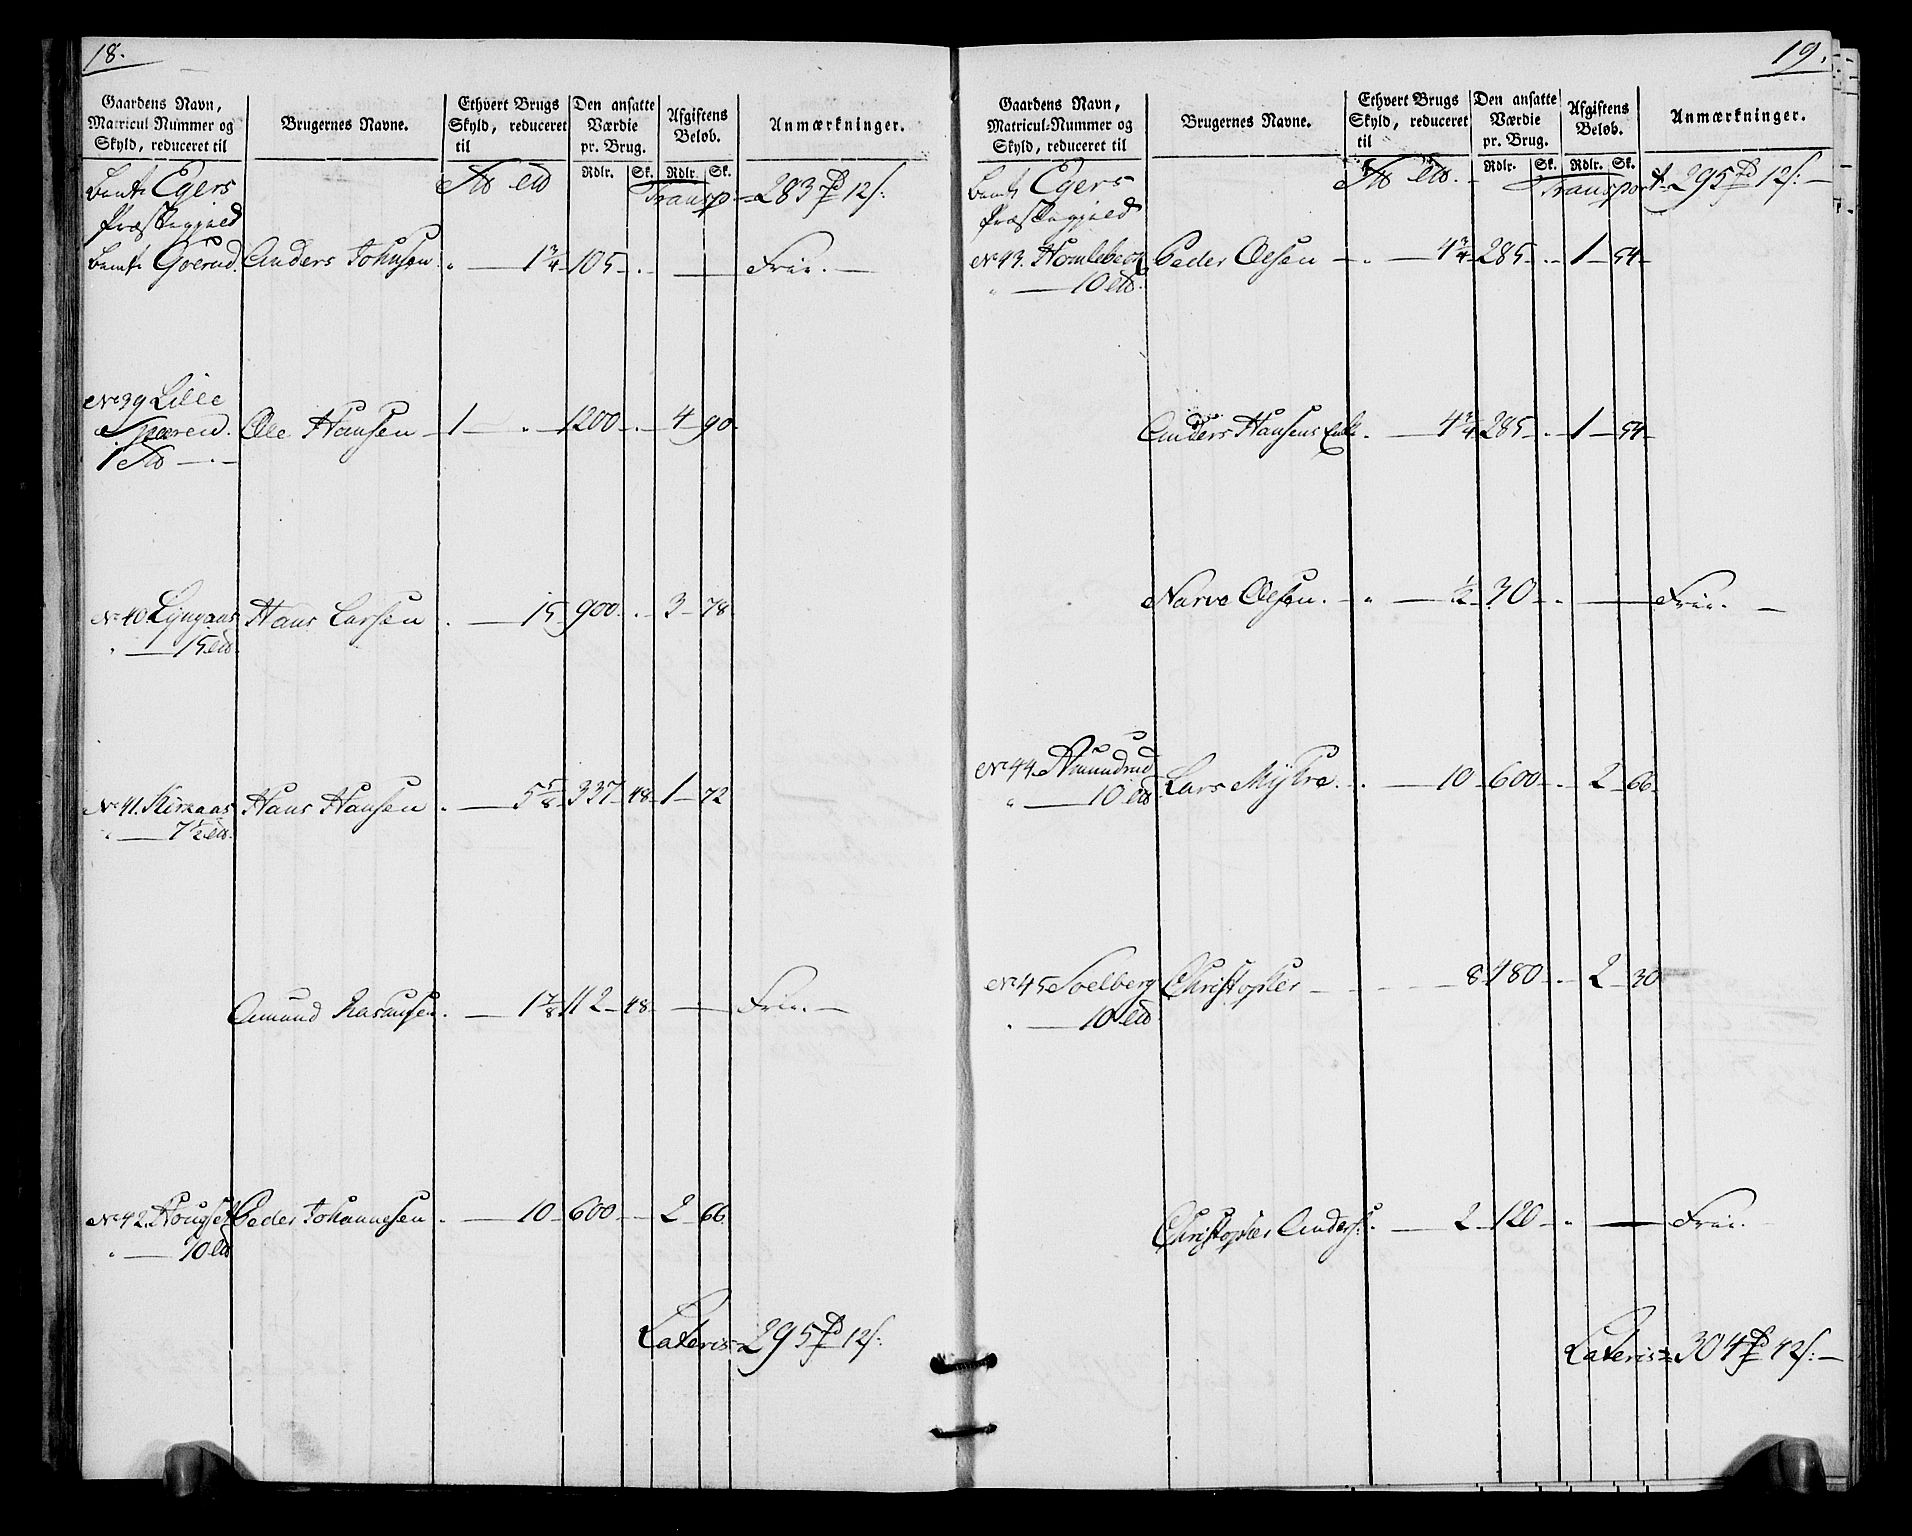 18.
Gaardens Navn, Matricul-Nummer og Skyld, reduceret til | Brugernes Navne. | Ethvert Brugs Skyld, reduceret til | Den ansatte Værdie pr. Brug. Rdlr. Sk. | Afgiftens Beløb. Rdlr. Sk. | Anmærkninger.
Egers
Præstegjeld
Transp 283 12 s:
Goerud. Anders Johnsen. " — 1 3/4 105 - . — Frie. —
No 39 Lille
Ole Hansen — 1 — " — 1200 - . 4 - 90.
1
No 40 Hans Larsen . — 15 900 - . 3 - 78.
" — 15
No 41. Hans Hansen . — 5 5/8 337 - 48 - 1 - 72
" — 7 1/2
Amund . — 1 7/8 112 - 48 - — Frie. —
No 42. Hougset Peder Johannesen . — 10 - 600 - 2 - 66.
" — 10
Lateris 295 12 s:
19.
Gaardens Navn, Matricul-Nummer og Skyld, reduceret til | Brugernes Navne. | Ethvert Brugs Skyld, reduceret til | Den ansatte Værdie pr. Brug. Rdlr. Sk. | Afgiftens Beløb. Rdlr. Sk. | Anmærkninger.
Egers
Præstegjeld
Transport 295 12 s: —
No 43. Peder Olsen — " — 4 3/4 285 - . - 1 - 54 -
" — 10
Anders Hansens Enke . — 4 3/4 285 - . - 1 - 54 -
Narve Olsen. — " — 1/2 - 30 - . — Frie. —
No 44. Lars Myhre . . — 10 - 600 - . 2 - 66.
" — 10
No 45 Solberg Christopher — 8 - 480 - . 2 - 30
" — 10
Christopher Anders: . — 2 - 120 - " — Frie.
Lateris 304 42 s: —